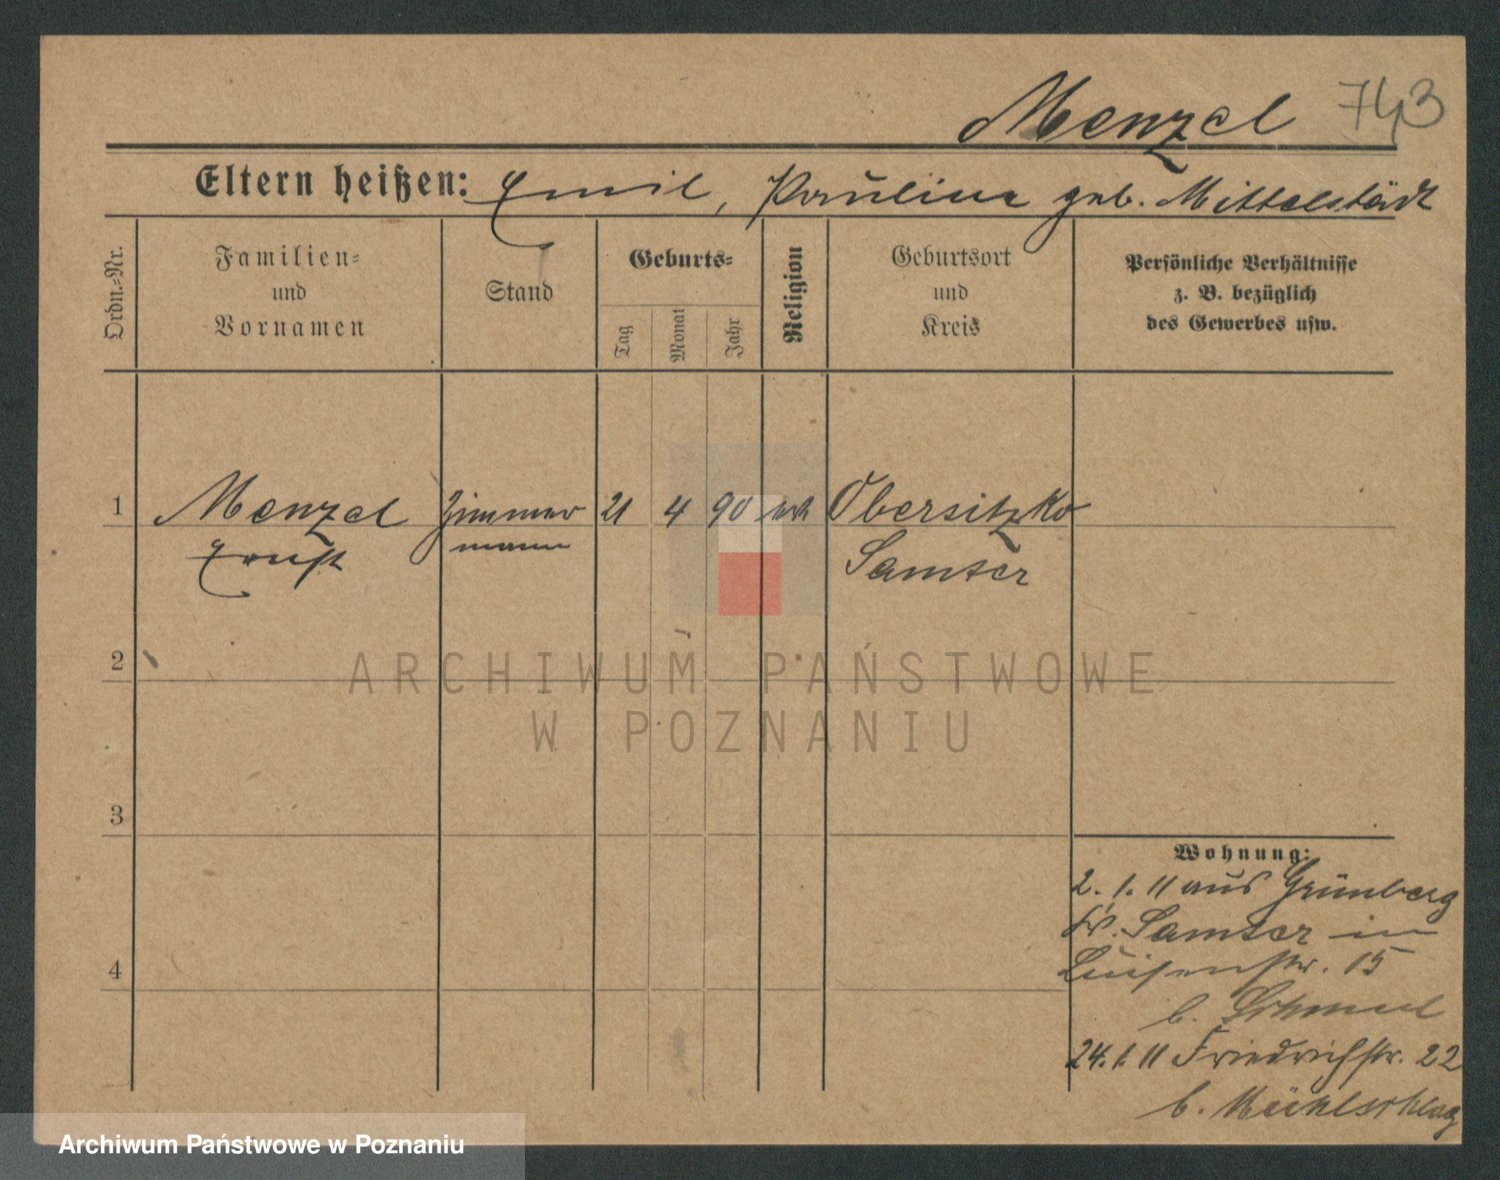 Menzel 743
Eltern heißen: Emil, Pauline geb. Mittelstädt
Ordn.-Nr.
Familien-
und
Vornamen
Stand
Geburts-
Tag
Monat
Jahr
Religion
Geburtsort
und
Kreis
Persönliche Verhältnisse
z. B. bezüglich
des Gewerbes usw.
1 Menzel Zimmer 21 4 90 Obersitzko
Ernst mann Samter
2
ARCHIWUM PAŃSTWOWE
W POZNANIU
3
Wohnung:
2. 1. 11 aus Grünberg
Kr. Samter in
Luisenstr. 15
b.
4
24. 1. 11 Friedrichstr. 22
b.
Archiwum Państwowe w Poznaniu